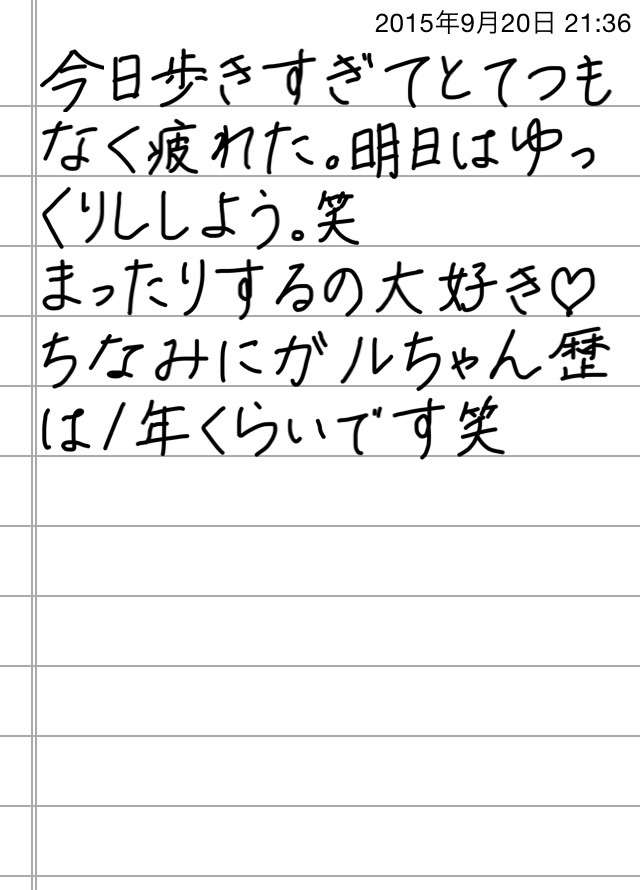 2015年9月20日 21:36
今日歩きすぎてとてつも
なく疲れた。明日はゆっ
くりししよう。笑
まったりするの大好き♡
ちなみにガルちゃん歴
は1年くらいです笑